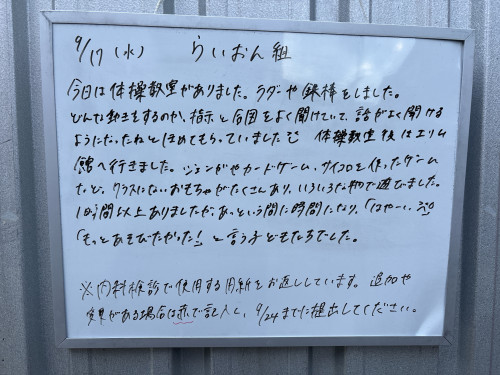 9/17(水) らいおん組
今日は体操教室がありました。ラダーや鉄棒をしました。
どんな動きをするのか、指示と合図をよく聞けていて、話がよく聞ける
ようになったねとほめてもらっていました 体操教室後はエリム
館へ行きました。ジェンガやカードゲーム、サイコロを作ったゲーム
など、クラスにないおもちゃがたくさんあり、いろいろな物で遊びました。
1時間以上ありましたが、あっという間に時間になり、「はやーい」
「もっとあそびたかった!」と言う子どもたちでした。
※内科検診で使用する用紙をお返ししています。追加や
変更がある場合は赤で記入し、9/24までに提出してください。